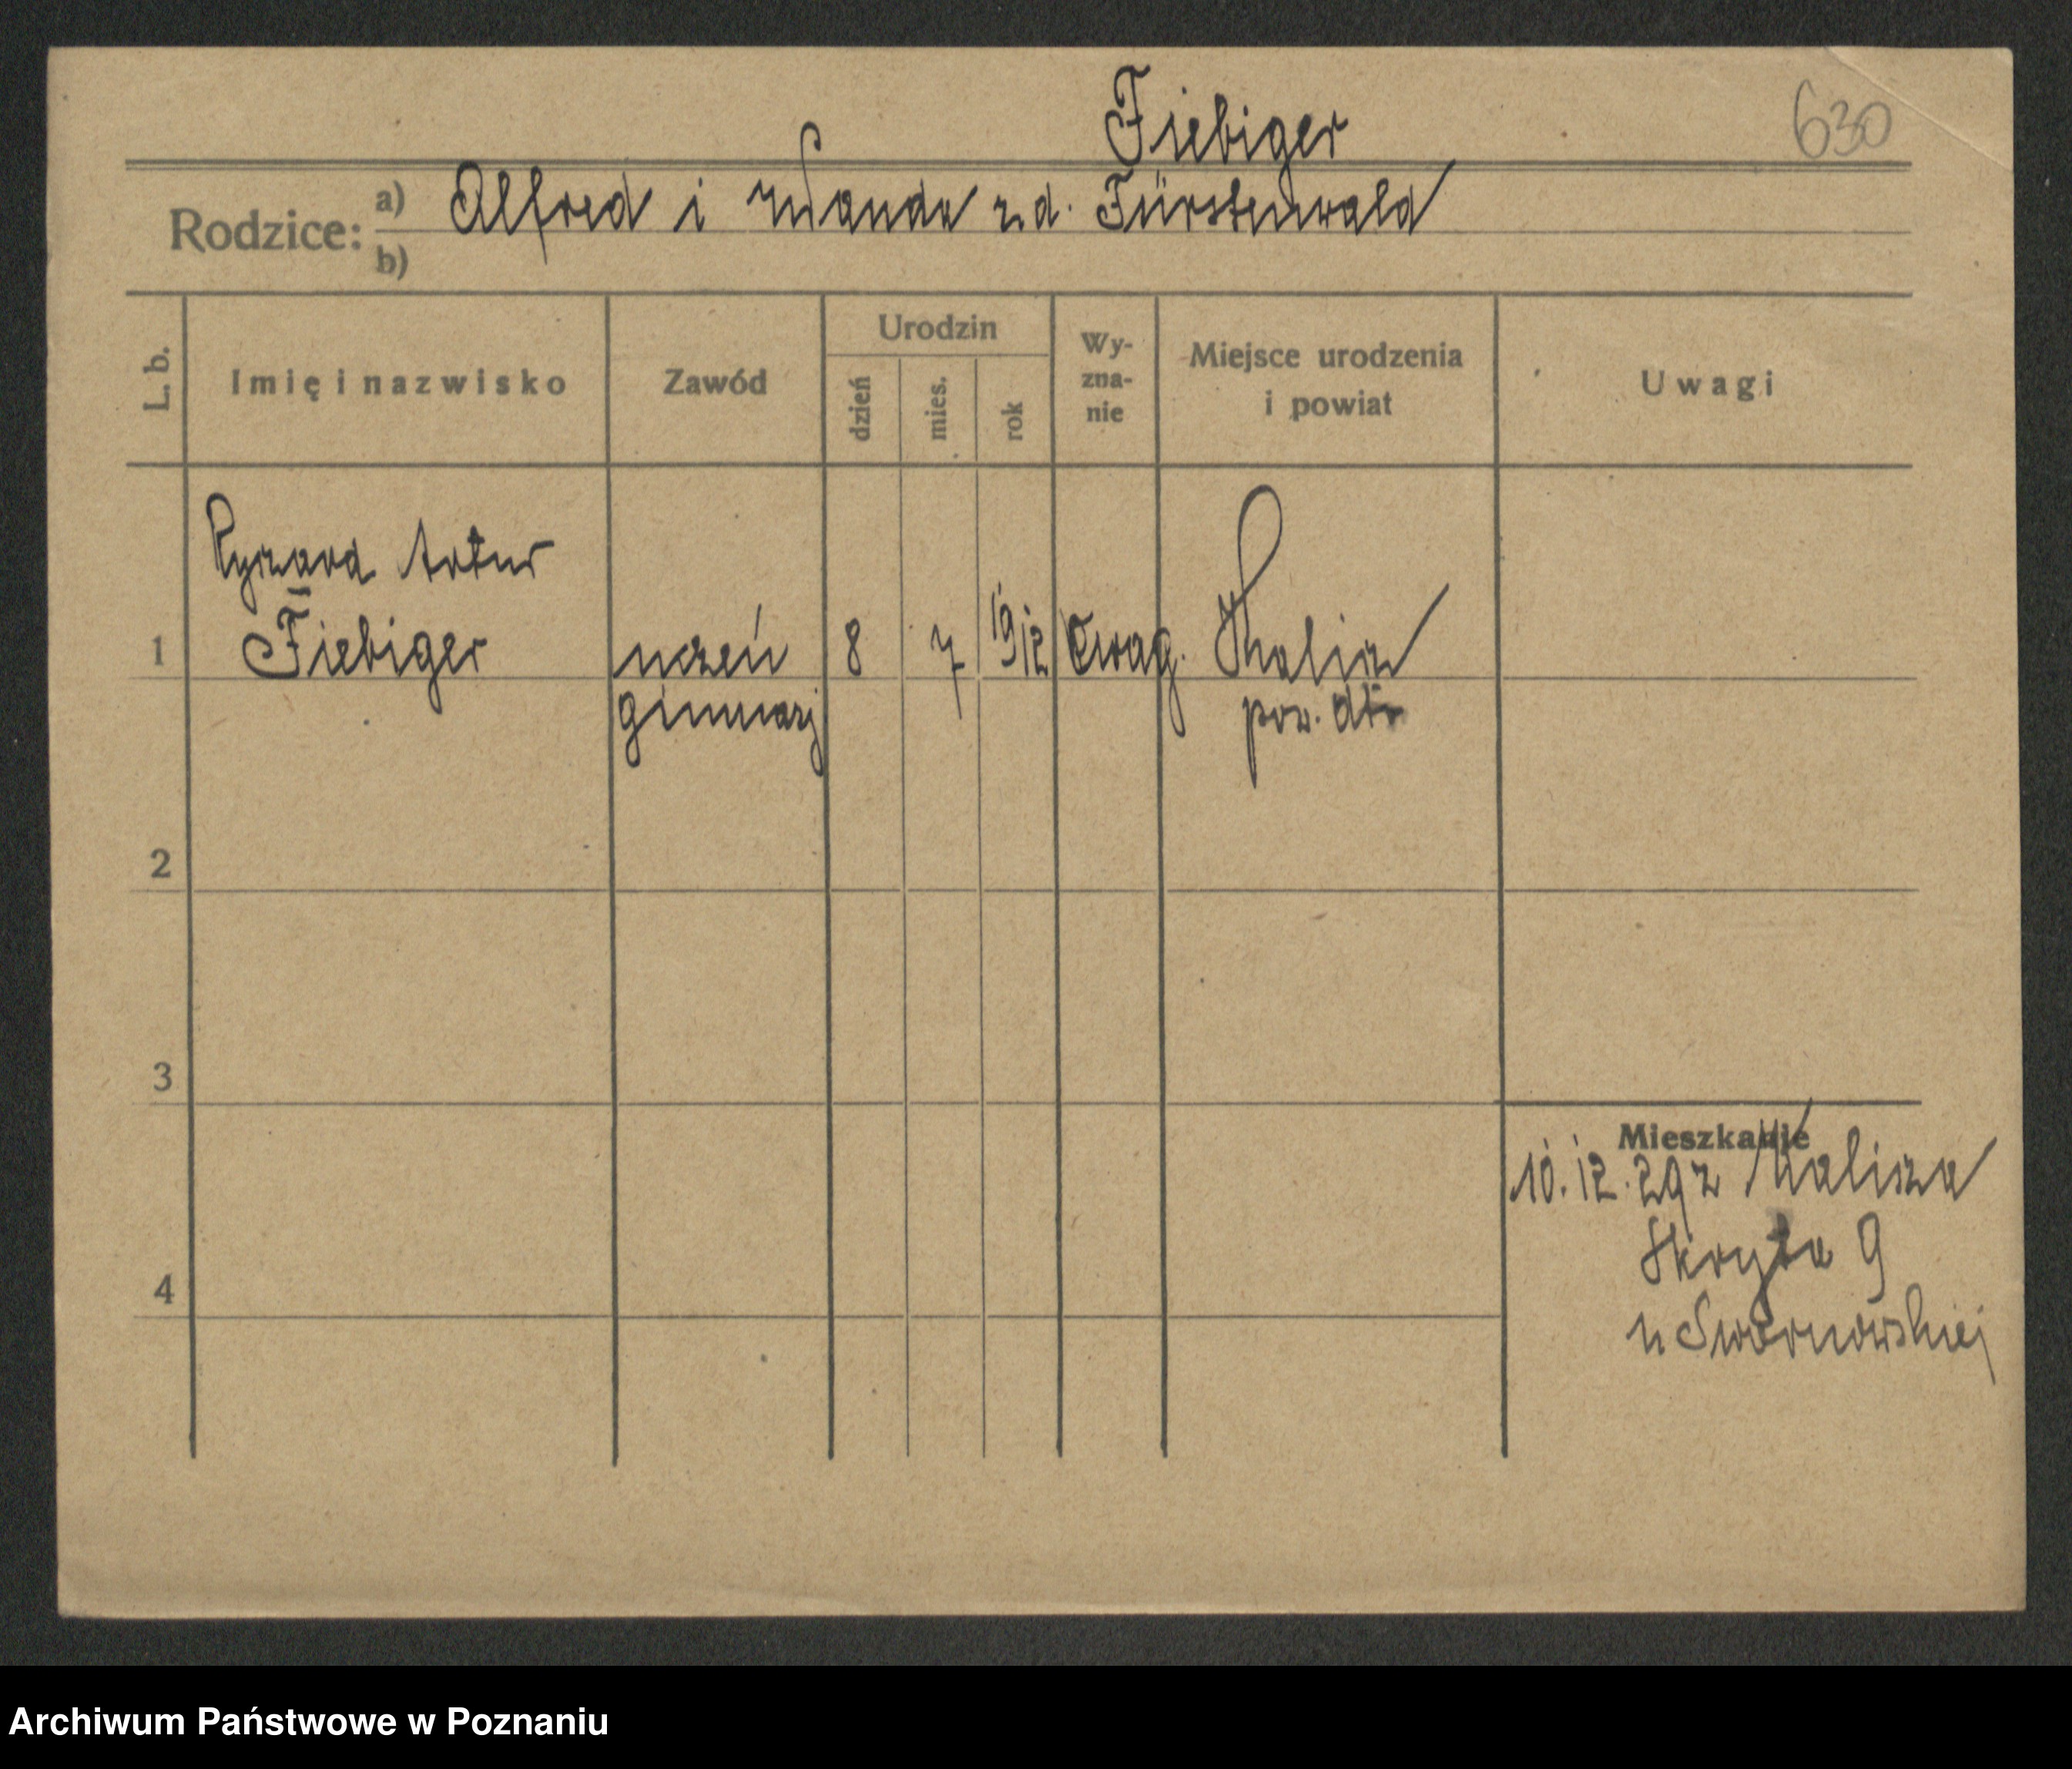 Fiebiger
630
Rodzice: a) Alfred i Wanda z d. Fürstenwald
b)
L. b.
Imię i nazwisko
Zawód
Urodzin
dzień
mies.
rok
Wy-
zna-
nie
Miejsce urodzenia
i powiat
Uwagi
Ryszard Artur
1 Fiebiger uczeń 8 7 1912 Ewag. Kalisz
gimnazj pow. dto
2
3
Mieszkanie
10.12.29 z Kalisza
Skryta 9
4
u Swornowskiej
Archiwum Państwowe w Poznaniu